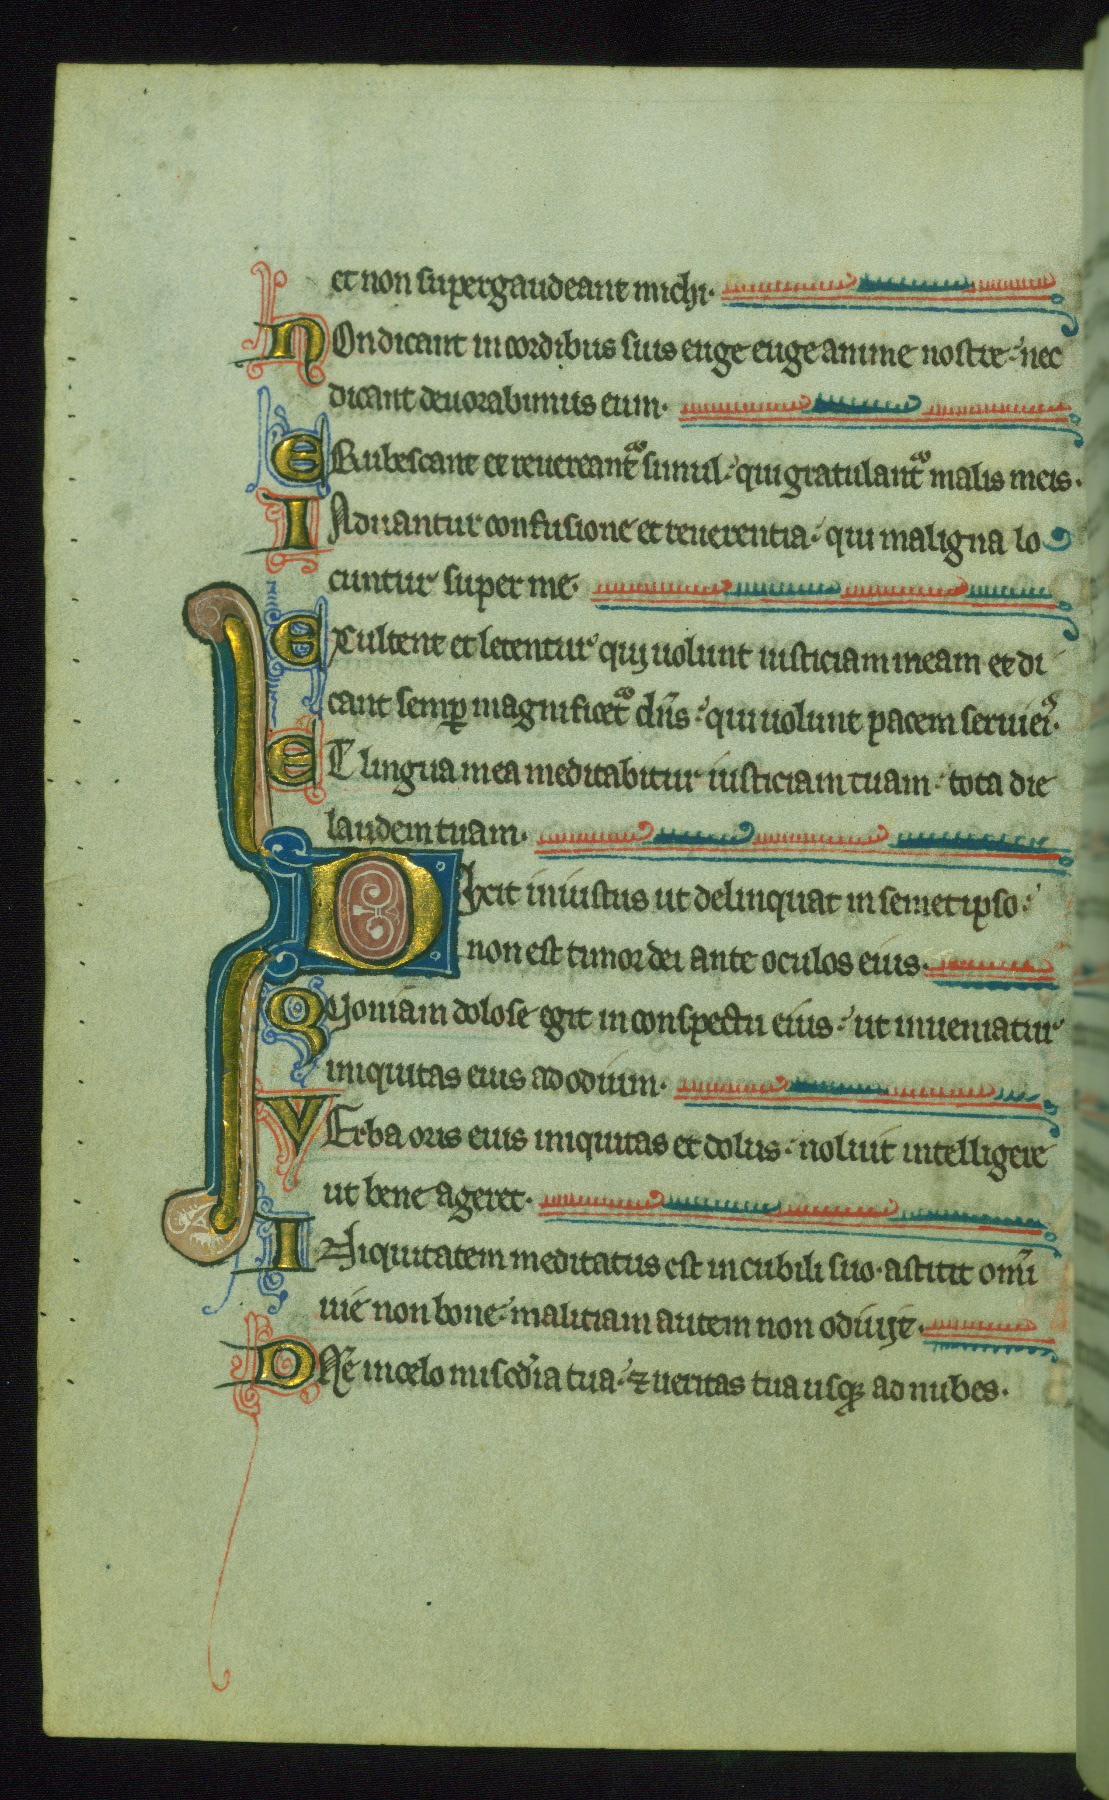 et non supergaudeant michi.
NOn dicant in cordibus suis euge euge anime nostre: nec
dicant deuorabimus eum.
ERubescant et reuereant᷑ simul: qui gratulant᷑ malis meis.
INduantur confusione et reuerentia: qui maligna lo
cuntur super me.
EXultent et letentur qui uolunt iusticiam meam et di
cant semp̲ magnificet᷑ dn̄s: qui uolunt pacem serui ei᷒.
ET lingua mea meditabitur iusticiam tuam: tota die
laudem tuam.
DIxit iniustus ut delinquat in semet ipso:
non est timor dei ante oculos eius.
QUoniam dolose egit in conspectu eius: ut inueniatur
iniquitas eius ad odium.
VErba oris eius iniquitas et dolus: noluit intelligere
ut bene ageret.
INiquitatem meditatus est in cubili suo. astitit omī
uie non bone: maliciam autem non odiuit.
DNe in celo miscd̄ia tua: ⁊ ueritas tua usqꝫ ad nubes.